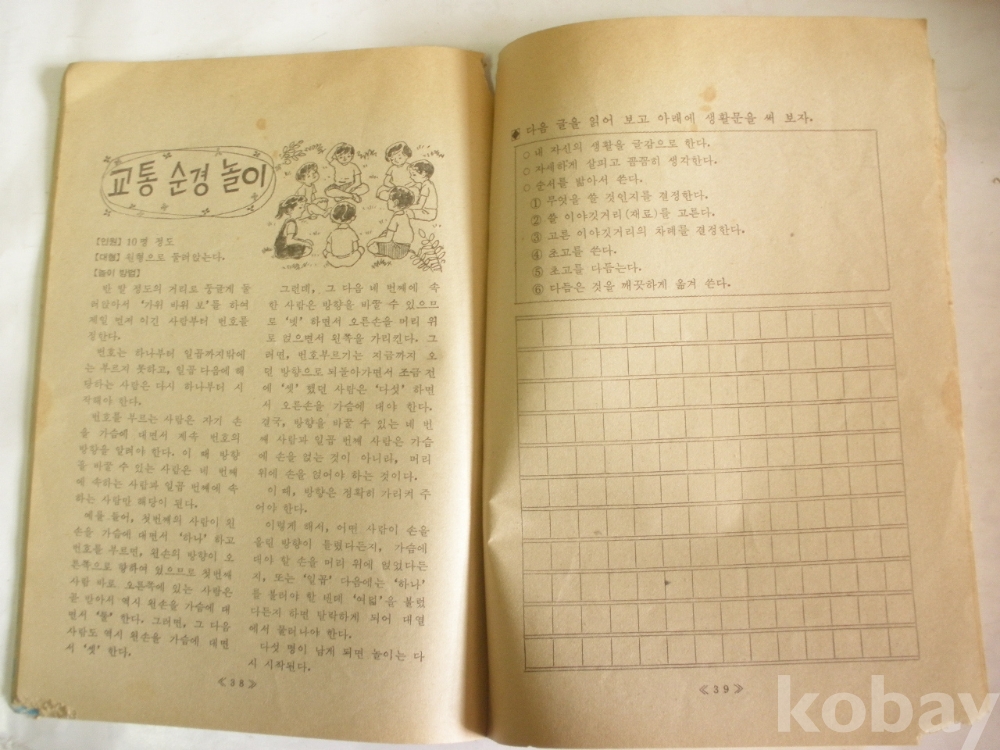 교통 순경 놀이
【인원】 10 명 정도
【대형】 원형으로 둘러앉는다.
【놀이 방법】
한 발 정도의 거리로 둥글게 둘
러앉아서 '가위 바위 보'를 하여
제일 먼저 이긴 사람부터 번호를
정한다.
번호는 하나부터 일곱까지밖에
는 부르지 못하고, 일곱 다음에 해
당하는 사람은 다시 하나부터 시
작해야 한다.
번호를 부르는 사람은 자기 손
을 가슴에 대면서 계속 번호의
방향을 알려야 한다. 이 때 방향
을 바꿀 수 있는 사람은 네 번째
에 속하는 사람과 일곱 번째에 속
하는 사람만 해당이 된다.
예를 들어, 첫번째의 사람이 왼
손을 가슴에 대면서 '하나' 하고
번호를 부르면, 왼손의 방향이 오
른쪽으로 향하여 있으므로 첫번째
사람 바로 오른쪽에 있는 사람은
곧 받아서 역시 왼손을 가슴에 대
면서 '둘' 한다. 그러면, 그 다음
사람도 역시 왼손을 가슴에 대면
서 '셋' 한다.
그런데, 그 다음 네 번째에 속
한 사람은 방향을 바꿀 수 있으므
로 '넷' 하면서 오른손을 머리 위
로 얹으면서 왼쪽을 가리킨다. 그
러면, 번호부르기는 지금까지 오
던 방향으로 되돌아가면서 조금 전
에 '셋' 했던 사람은 '다섯' 하면
서 오른손을 가슴에 대야 한다.
결국, 방향을 바꿀 수 있는 네 번
째 사람과 일곱 번째 사람은 가슴
에 손을 얹는 것이 아니라, 머리
위에 손을 얹어야 하는 것이다.
이 때, 방향은 정확히 가리켜 주
어야 한다.
이렇게 해서, 어떤 사람이 손을
올릴 방향이 틀렸다든지, 가슴에
대야 할 손을 머리 위에 얹었다든
지, 또는 '일곱' 다음에는 '하나'
를 불러야 할 텐데 '여덟'을 불렀
다든지 하면 탈락하게 되어 대열
에서 물러나야 한다.
다섯 명이 남게 되면 놀이는 다
시 시작된다.
≪ 38 ≫
다음 글을 읽어 보고 아래에 생활문을 써 보자.
○ 내 자신의 생활을 글감으로 한다.
○ 자세하게 살피고 꼼꼼히 생각한다.
○ 순서를 밟아서 쓴다.
① 무엇을 쓸 것인지를 결정한다.
② 쓸 이야깃거리(재료)를 고른다.
③ 고른 이야깃거리의 차례를 결정한다.
④ 초고를 쓴다.
⑤ 초고를 다듬는다.
⑥ 다듬은 것을 깨끗하게 옮겨 쓴다.
≪ 39 ≫
kobay